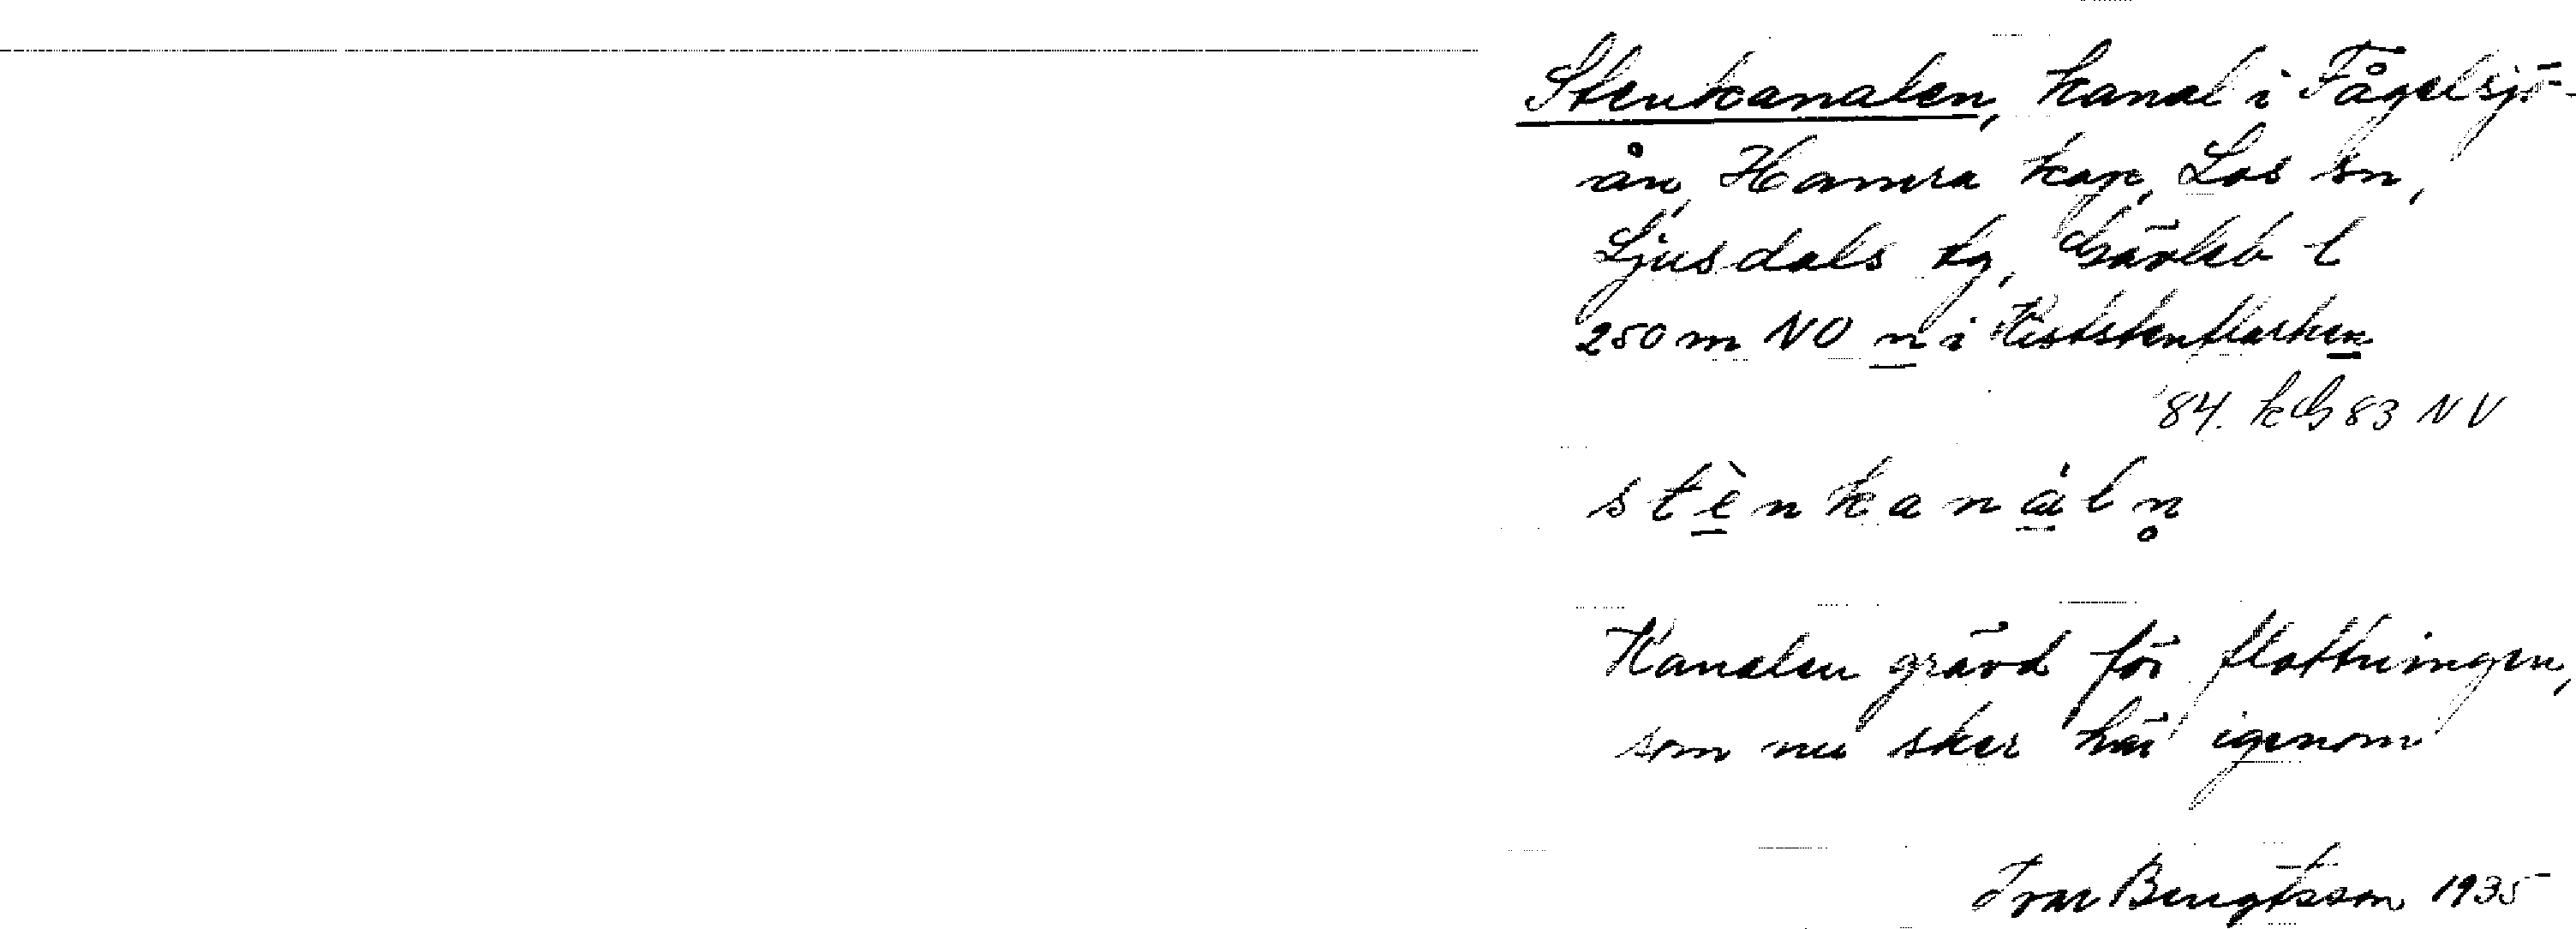 Stenkanalen, kanal i Fågelsjö-
ån, Hamra kap, Los sn,
Ljusdals tg, Gävleb l
250 m NO n i Kiststenflarken
'84. kbl 83 NV
stènkanáln̥
Kanalen grävd för flottningen,
som nu sker här igenom
Ivar Bengtsson 1935